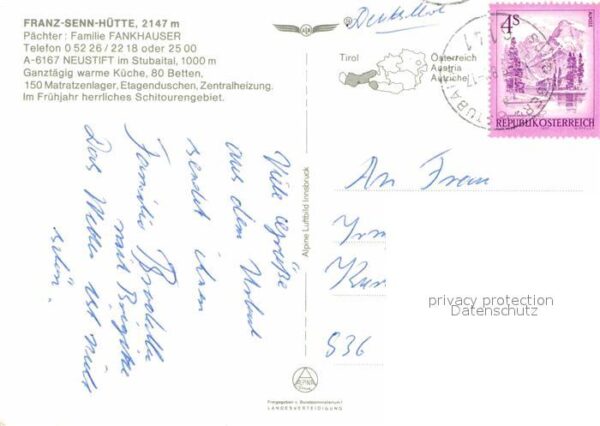 FRANZ-SENN-HÜTTE, 2147 m
Pächter: Familie FANKHAUSER
Telefon 0 52 26 / 22 18 oder 25 00
A-6167 NEUSTIFT im Stubaital, 1000 m
Ganztägig warme Küche, 80 Betten,
150 Matratzenlager, Etagenduschen, Zentralheizung.
Im Frühjahr herrliches Schitourengebiet.
Viele Grüße
aus dem Urlaub
sendet Ihnen
Familie
mit Brigitte
Das Wetter ist nicht
schön.
Alpine Luftbild Innsbruck
ALPINE
Freigegeben v. Bundesministerium f.
LANDESVERTEIDIGUNG
Tirol
Österreich
Austria
Autriche
4s
REPUBLIK ÖSTERREICH
An Frau
Irm
Kur
privacy protection
Datenschutz
536